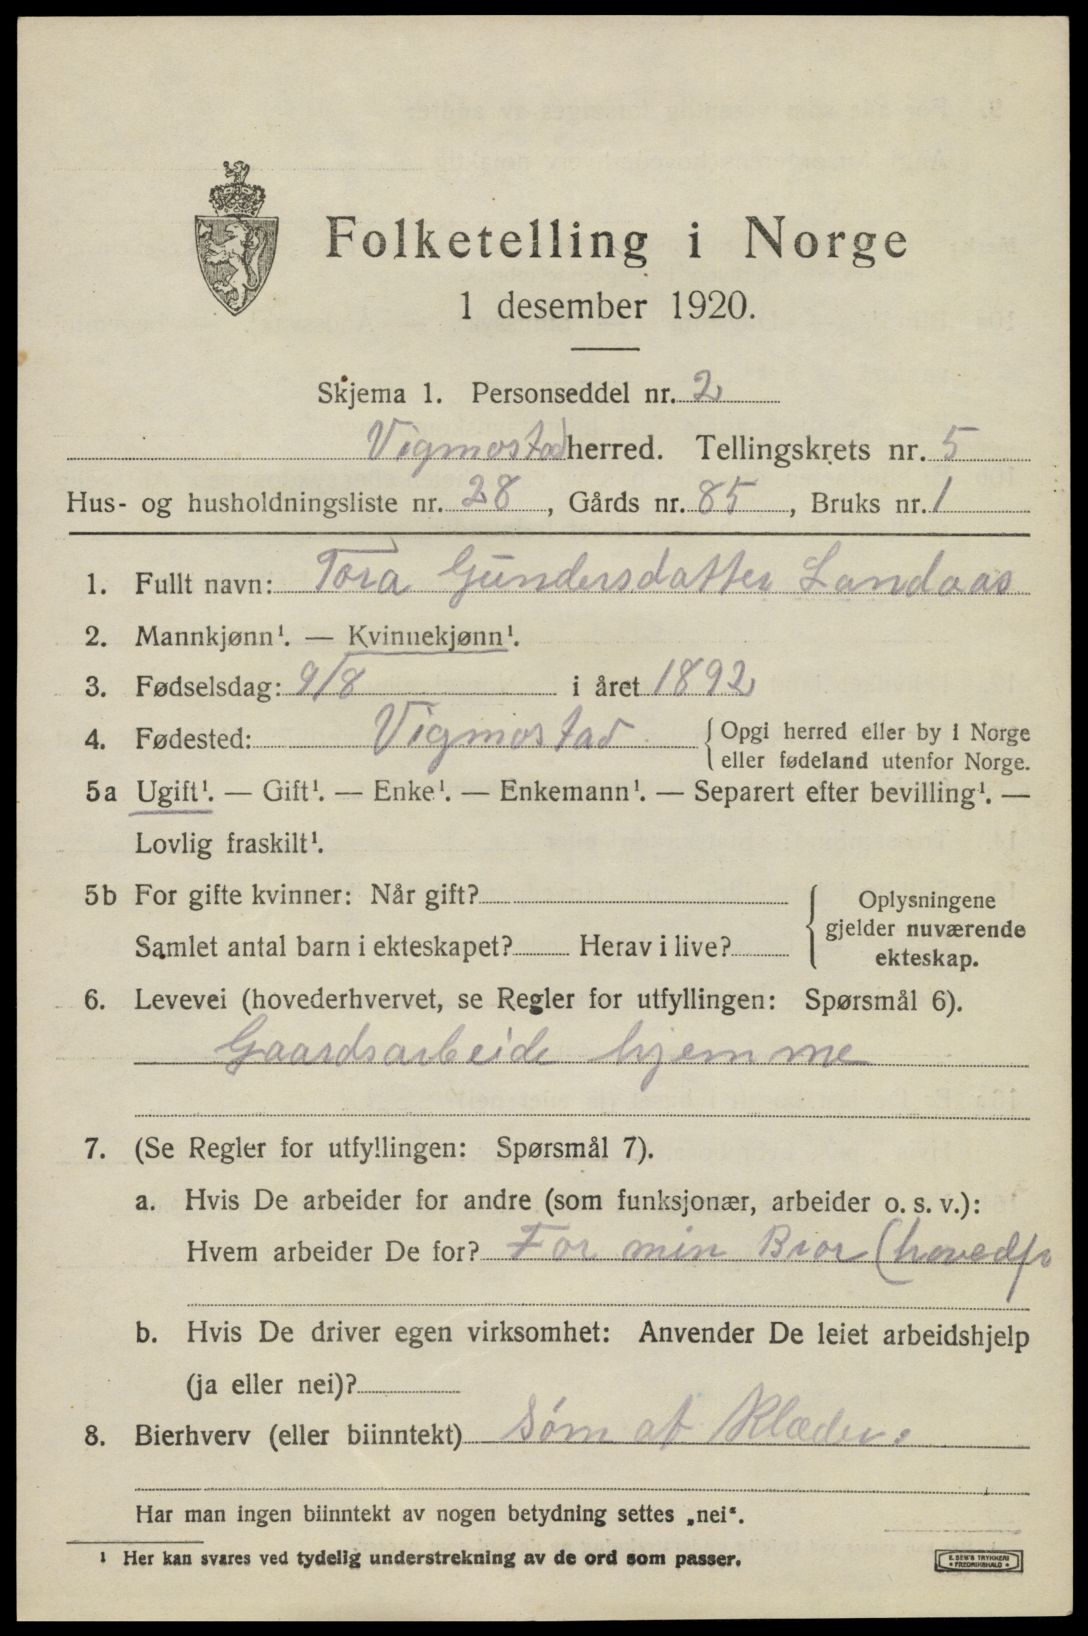 Folketelling i Norge
1 desember 1920.
Skjema 1. Personseddel nr. 2
Vigmostad herred. Tellingskrets nr. 5
Hus- og husholdningsliste nr. 28, Gårds nr. 85, Bruks nr. 1
1. Fullt navn: Tora Gundersdatter Landaas
2. Mannkjønn¹. — Kvinnekjønn¹.
3. Fødselsdag: 9/8 i året 1892
4. Fødested: Vigmostad { Opgi herred eller by i Norge
eller fødeland utenfor Norge.
5a Ugift¹. — Gift¹. — Enke¹. — Enkemann¹. — Separert efter bevilling¹. —
Lovlig fraskilt¹.
5b For gifte kvinner: Når gift?
Samlet antal barn i ekteskapet? Herav i live?
{ Oplysningene
gjelder nuværende
ekteskap.
6. Levevei (hovederhvervet, se Regler for utfyllingen: Spørsmål 6).
Gaardsarbeide hjemme
7. (Se Regler for utfyllingen: Spørsmål 7).
a. Hvis De arbeider for andre (som funksjonær, arbeider o. s. v.):
Hvem arbeider De for? For min Bror (hovedp
b. Hvis De driver egen virksomhet: Anvender De leiet arbeidshjelp
(ja eller nei)?
8. Bierhverv (eller biinntekt) Søm af Klæder.
Har man ingen biinntekt av nogen betydning settes „nei“.
¹ Her kan svares ved tydelig understrekning av de ord som passer.
E. SEM'S TRYKKERI
FREDRIKSHALD